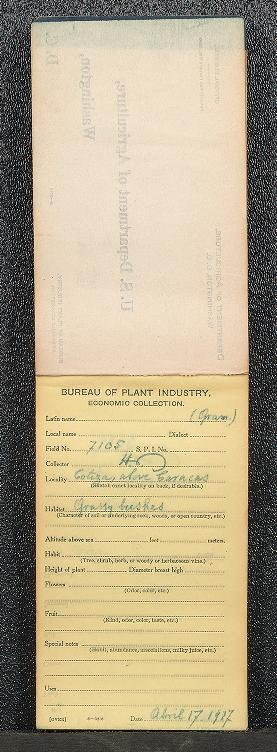 Washington,
D. C.
U. S. Department of Agriculture,
BUREAU OF PLANT INDUSTRY,
ECONOMIC COLLECTION.
Latin name (Gram)
Local name Dialect
Field No. 7105 S. P. I. No.
Collector
Locality Cotiza, above Caracas
(Sketch exact locality on back, if desirable.)
Habitat Grassy bushes
(Character of soil or underlying rock, woods, or open country, etc.)
Altitude above sea feet meters.
Habit
(Tree, shrub, herb, or woody or herbaceous vine.)
Height of plant Diameter breast high
Flowers
(Odor, color, etc.)
Fruit
(Kind, odor, color, taste, etc.)
Special notes
(Habit, abundance, associations, milky juice, etc.)
Uses
[OVER] Date April 17, 1917